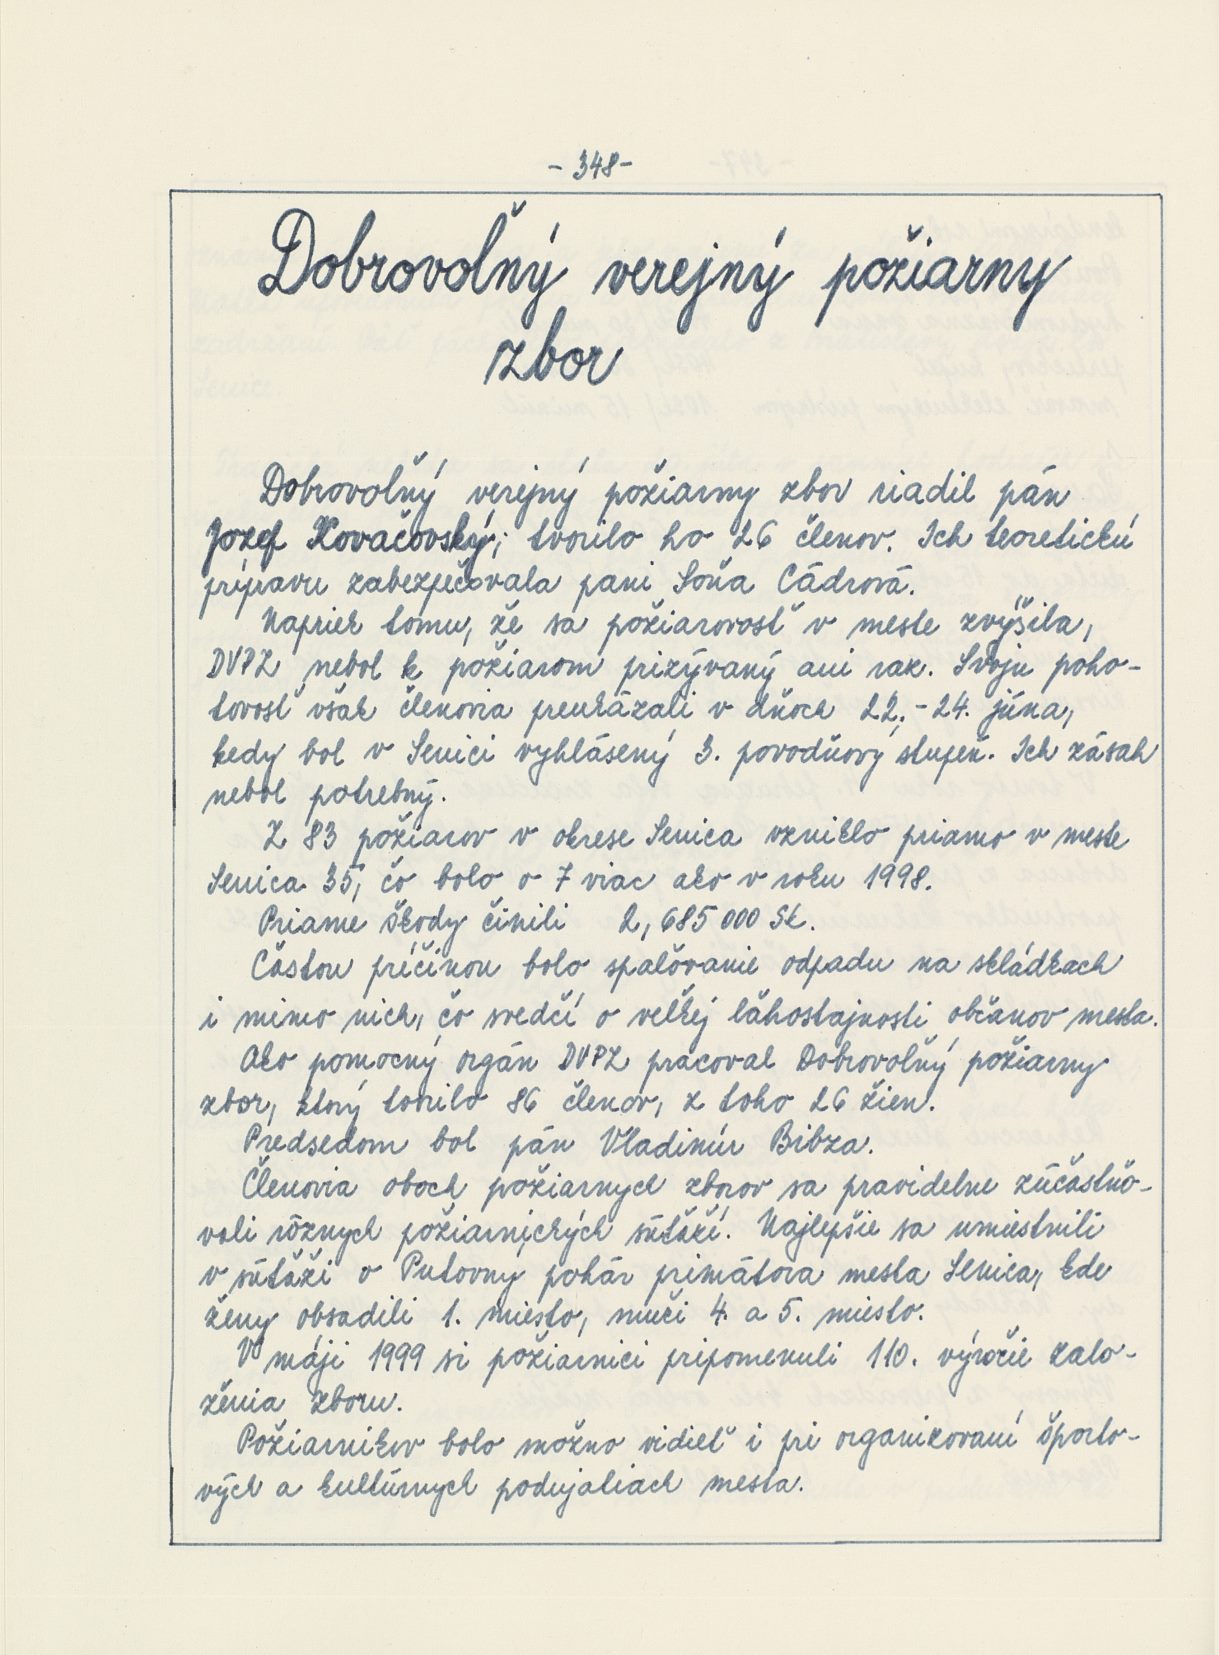 - 348 -
Dobrovoľný verejný požiarny
zbor
Dobrovoľný verejný požiarny zbor riadil pán
Jozef Kovačovský; tvorilo ho 26 členov. Ich teoretickú
prípravu zabezpečovala pani Soňa Cádrová.
Napriek tomu, že sa požiarovosť v meste zvýšila,
DVPZ nebol k požiarom prizývaný ani raz. Svoju poho-
tovosť však členovia preukázali v dňoch 22. - 24. júna,
kedy bol v Senici vyhlásený 3. povodňový stupeň. Ich zásah
nebol potrebný.
Z 83 požiarov v okrese Senica vzniklo priamo v meste
Senica 35, čo bolo o 7 viac ako v roku 1998.
Priame škody činili 2,685 000 Sk.
Častou príčinou bolo spaľovanie odpadu na skládkach
i mimo nich, čo svedčí o veľkej ľahostajnosti občanov mesta.
Ako pomocný orgán DVPZ pracoval Dobrovoľný požiarny
zbor, ktorý tvorilo 86 členov, z toho 26 žien.
Predsedom bol pán Vladimír Bibza.
Členovia oboch požiarnych zborov sa pravidelne zúčastňo-
vali rôznych požiarnických súťaží. Najlepšie sa umiestnili
v súťaži o Putovny pohár primátora mesta Senica, kde
ženy obsadili 1. miesto, muži 4. a 5. miesto.
V máji 1999 si požiarnici pripomenuli 110. výročie zalo-
ženia zboru.
Požiarnikov bolo možno vidieť i pri organizovaní športo-
vých a kultúrnych podujatiach mesta.